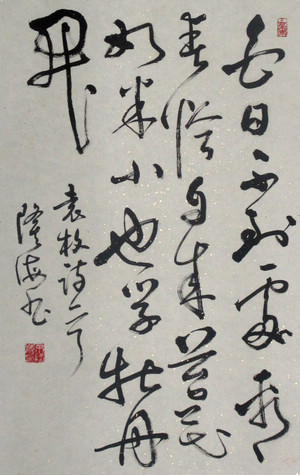 白日不到處青
春恰自来苔花
如米小也学牡丹
開
袁枚诗
海书